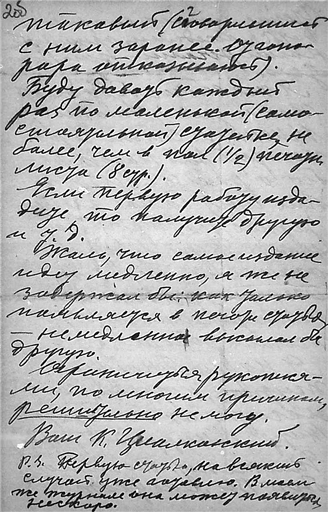 таковый (сговоримся
с ним заранее. От гоно-
рара отказываюсь).
Буду давать каждый
раз по маленькой (само-
стоятельной) статейке, не
более, чем в пол (1/2) печатн.
листа (8 стр.).
Если первую работу изда-
дите, то получите другую
и т.д.
Жаль, что самое издание
идет медленно, я же не
задержал бы: как только
появляется в печати статья
— немедленно выслал бы
другую.
рукопися-
ми, по многим причинам,
решительно не могу.
Ваш К. Циолковский.
P.S. Первую статью, на всякий
случай уже готовлю. В
же журнале она может появиться
не скоро.